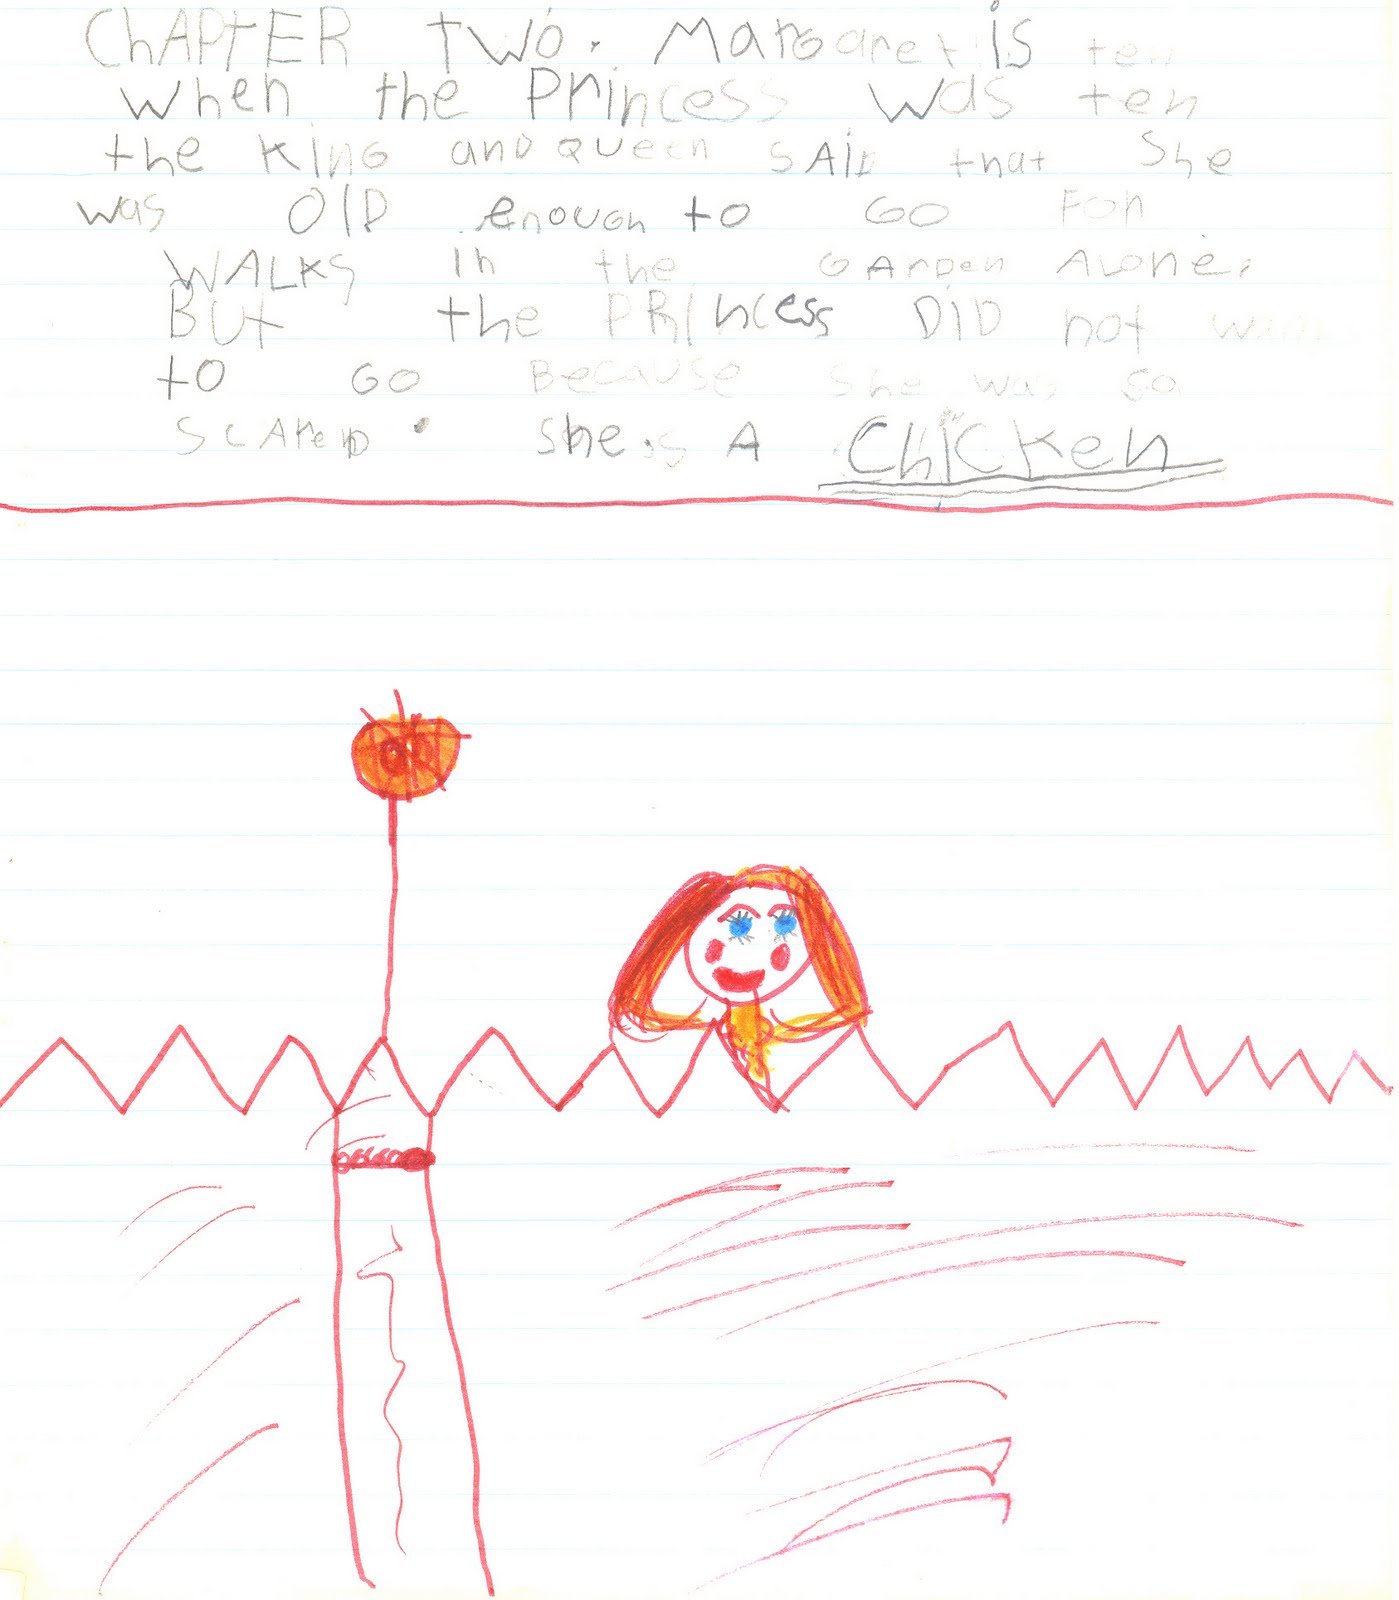 ChAPtER TWO. Margaret is ten
when the Princess was ten
the King anD Queen SAiD that She
was OlD enough to GO For
WALKS in the GArDen Alone.
But the PRincess DiD not want
to GO Because she was so
ScAreD. She is A Chicken